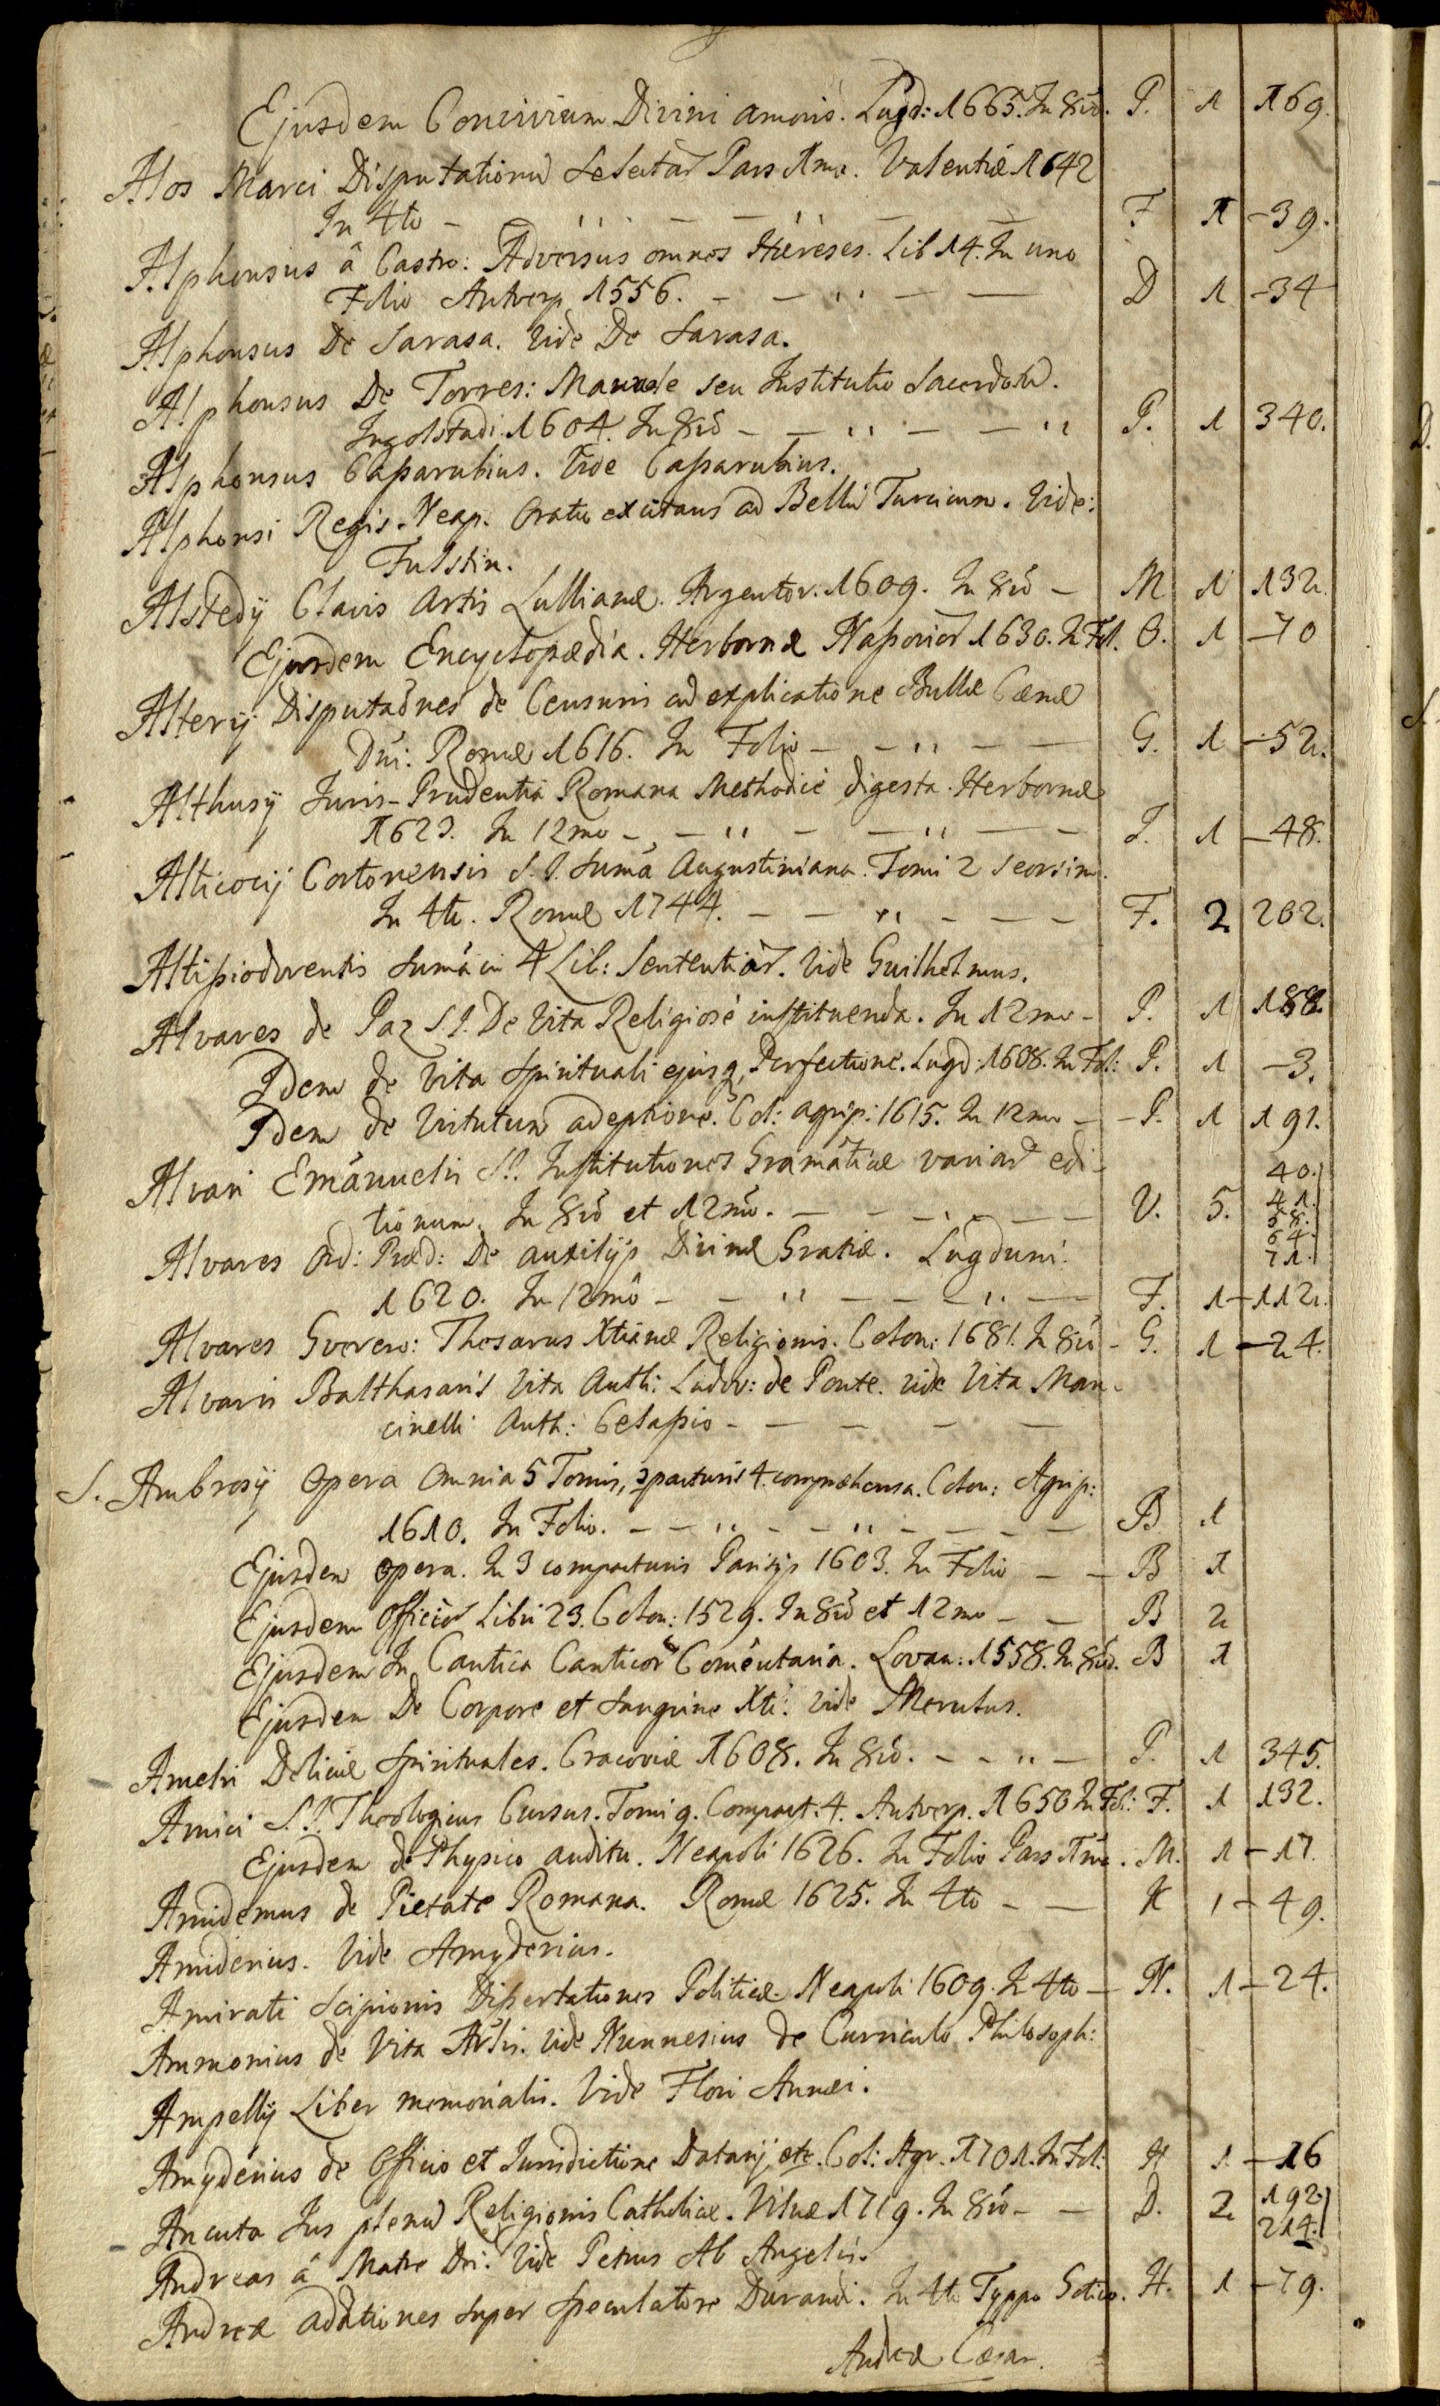 Ejusdem Convivium Divini amoris. Lugd: 1665. In 8vo. P. 1 169.
Alos Marci Disputationū Selectar Pars 1ma. Valentiæ 1642
In 4to - F 1 -39.
Alphonsus â Castro: Adversus omnes Hæreses. Lib 14. In uno
Folio Antverp. 1556. - D 1 -34
Alphonsus De Sarasa. Vide De Sarasa.
Alphonsus De Torres: Manuale seu Institutio Sacerdotū.
Ingolstadi. 1604. In 8vo - P. 1 340.
Alphonsus Caparubius. Vide Caparubius.
Alphonsi Regis. Neap. Oratio excitans ad Bellū Turcicum. Vide:
Fulstin.
Alstedij Clavis Artis Lullianæ. Argentor. 1609. In 8vo - M 1 132.
Ejusdem Encyclopædia. Herbornæ Nassovior 1630. In Fol. O. 1 -70
Alterij Disputaōnes de Censuris cū explicatione Bullæ Cænæ
Dni: Romæ 1616. In Folio - G. 1 -52.
Althusij Juris-Prudentia Romana Methodicè digesta. Herbornæ
1623. In 12mo - I. 1 -48.
Alticocij Cortonensis S.J. Suma Augustiniana. Tomi 2 seorsim.
In 4to. Romæ 1744. - F. 2 202.
Altissiodorentis Suma in 4 Lib: Sententiar. Vide Guilhelmus.
Alvares de Paz S.J. De Vita Religiosè instituenda. In 12mo - P. 1 188.
Idem de Vita Spirituali ejusq, Perfectione. Lugd: 1608. In Fol: P. 1 -3.
Idem de Virtutum adeptione. Col: agrip: 1615. In 12mo - P. 1 191.
Alvari Emānuelis S.J. Institutiones Gramāticæ variar edi-
tionum. In 8vo et 12mo. - V. 5. 40. 41. 58. 64. 71.
Alvares Ord: Præd: De auxilijs Divinæ Gratiæ. Lugduni:
1620. In 12mo - F. 1 -112.
Alvares Gverero: Thesarus Xtianæ Religionis. Colon: 1681. In 8vo - G. 1 -24.
Alvaris Balthasaris Vita Auth: Ludov: de Ponte. vide Vita Man-
cinelli Auth: Celapio -
S. Ambrosij Opera Omnia 5 Tomis, ɔpacturis 4. compræhensa. Colon: Agrip:
1610. In Folio. - B 1
Ejusdem opera. In 3 compacturis Parisijs 1603. In Folio - B 1
Ejusdem Officior Libri 23. Colon: 1529. In 8vo et 12mo - B 2
Ejusdem In Cantica Canticor Comēntaria. Lovan: 1558. In 8vo. B 1
Ejusdem De Corpore et Sanguine Xti: Vide Merutus.
Ameln Deliciæ Spirituales. Cracoviæ 1608. In 8vo. - P. 1 345.
Amici S.J. Theologicus Cursus. Tomi 9. Compact: 4. Antverp. 1650 In Fol: F. 1 132.
Ejusdem de Physico auditu. Neapoli 1626. In Folio Pars 1ma. M. 1 -17.
Amidemus de Pietate Romana. Romæ 1625. In 4to - K 1 -49.
Amidenius. Vide Amydenius.
Amirati Scipionis Dissertationes Politicæ. Neapoli 1609. In 4to - N. 1 -24.
Ammonius de Vita Arlis. Vide Nunnesius de Curriculo Philosoph:
Ampellij Liber memorialis. Vide Flori Annæi.
Amydenius de Officio et Jurisdictione Datarij etc. Col: Agr. 1701. In Fol: H 1 -16
Ancuta Jus plenū Religionis Catholicæ. Vilnæ 1719. In 8vo - D. 2. 192. 214.
Andreas â Matre Dei. Vide Petrus Ab Angelis.
Andreæ additiones super Speculatore Durandi. In 4to Typpo Gotico. H. 1 -79.
Andreæ Cæsar.